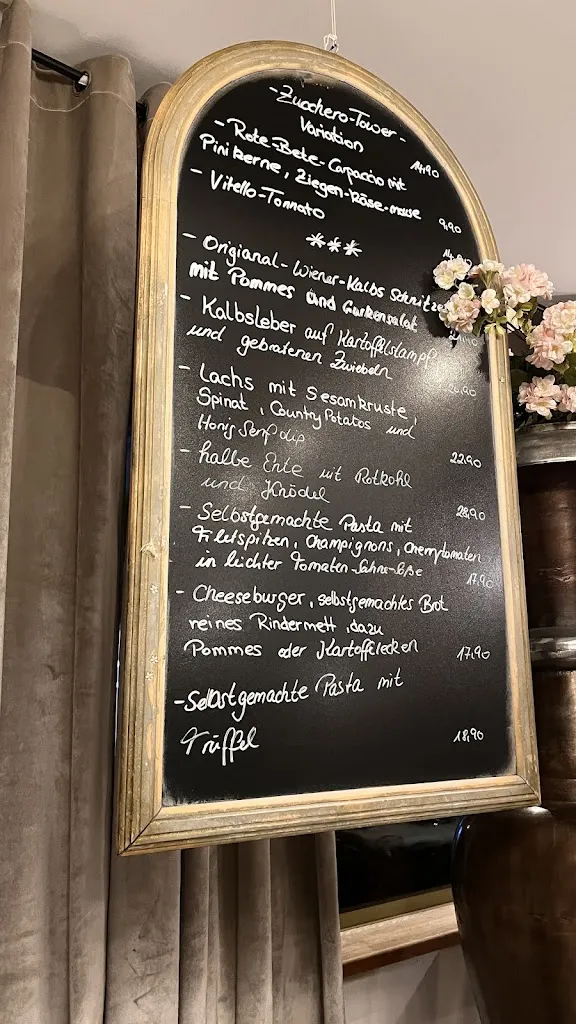 -Zucchero-Tower-
Variation 14,90
- Rote-Bete-Carpaccio mit
Pinikerne, Ziegen-Käse-mouse 9,90
- Vitello-Tonnato
***
- Origianal-Wiener-Kalbs Schnitzel
mit Pommes und Gurkensalat
- Kalbsleber auf Kartoffelstampf
und gebratenen Zwiebeln
- Lachs mit Sesamkruste,
Spinat, Country Potatos und
Honig Senf dip 22,90
- halbe Ente mit Rotkohl
und Knödel 28,90
- Selbstgemachte Pasta mit
Filetspitzen, Champignons, Cherrytomaten
in leichter Tomaten-Sahne-Soße 17,90
- Cheeseburger, selbstgemachtes Brot
reines Rindermett, dazu
Pommes oder Kartoffelecken 17,90
-Selbstgemachte Pasta mit
Trüffel 18,90